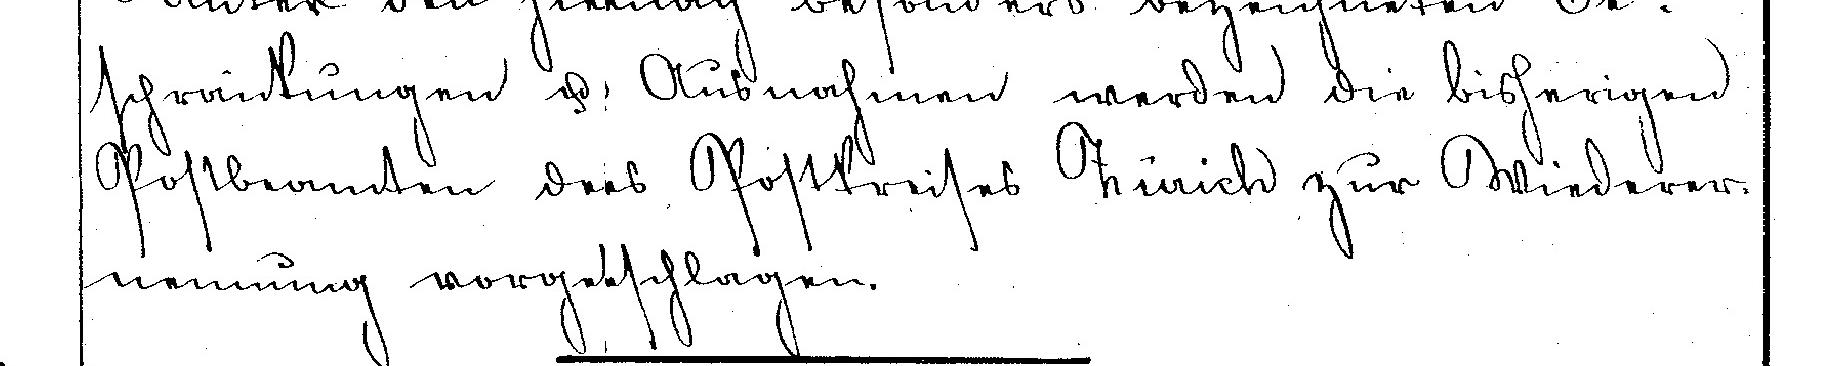 unter den hienach besonders bezeichneten Be-
schränkungen u. Ausnahmen werden die bisherigen
Postbeamten des Postkreises Zürich zur Wiederer-
nennung vorgeschlagen.